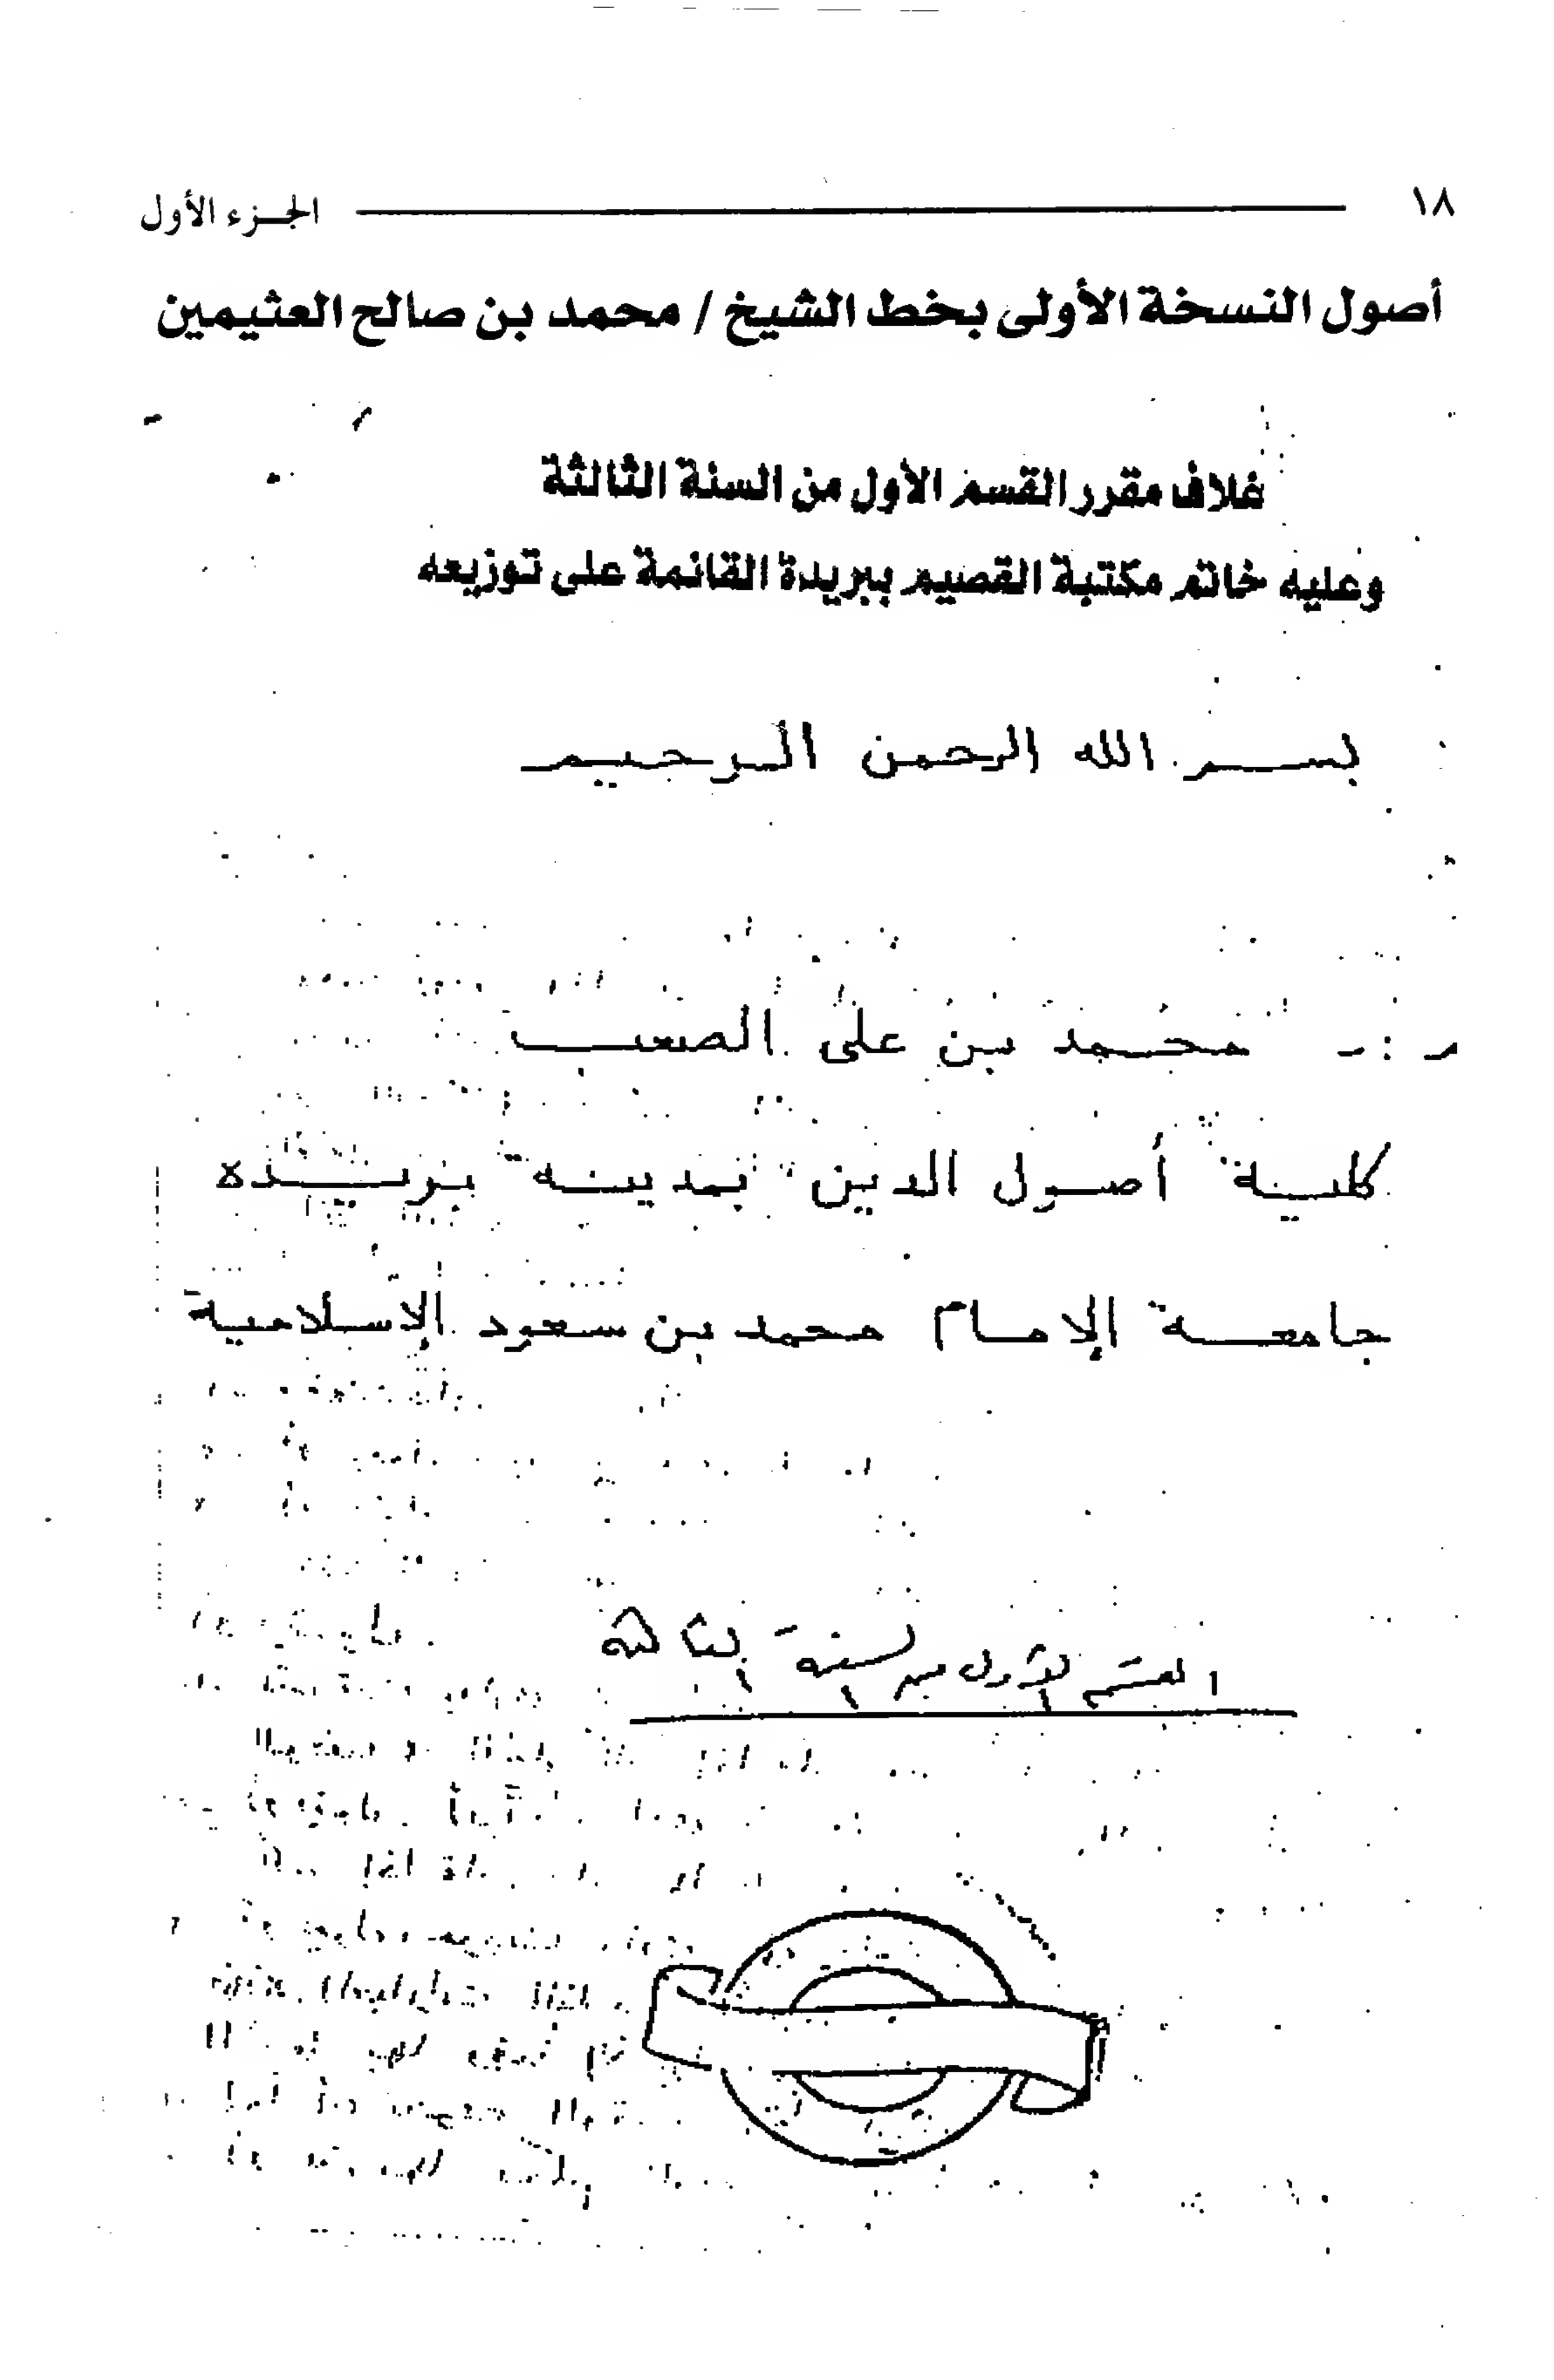 ١٨ الجزء الأول
أصول النسخة الأولى بخط الشيخ / محمد بن صالح العثيمين
غلاف مقرر القسم الأول من السنة الثالثة
وعليه خاتم مكتبة القصيم ببريدة القائمة على توزيعه
بسم الله الرحمن الرحيم
محمد بن على الصعب
كلية أصول الدين بمدينه بريده
جامعة الإمام محمد بن سعود الإسلامية
القسم الأول من السنة الثالثة